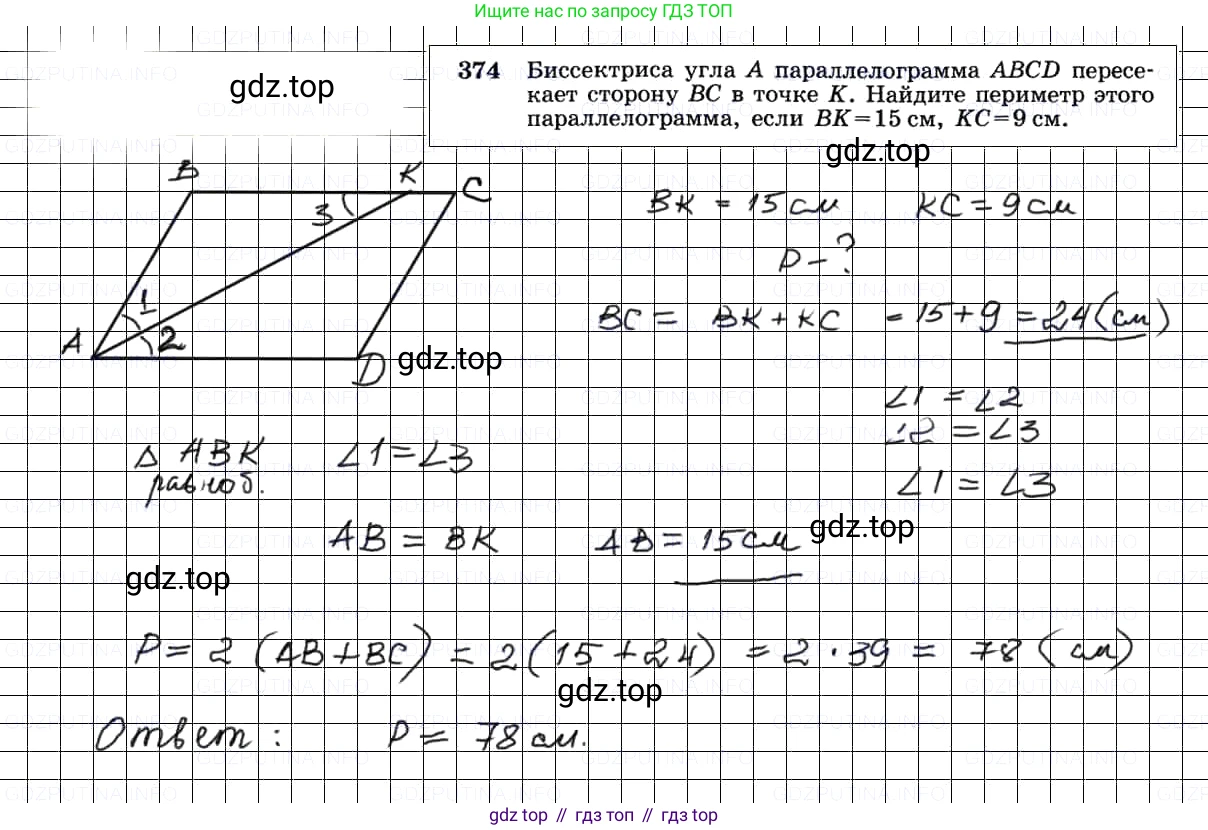 Ищите нас по запросу ГДЗ ТОП
374 Биссектриса угла A параллелограмма ABCD пересе-
кает сторону BC в точке K. Найдите периметр этого
параллелограмма, если BK=15 см, KC=9 см.
gdz.top
gdz.top
B K C
3
1
A 2
D
gdz.top
BK = 15 см KC = 9 см
P - ?
BC = BK + KC = 15 + 9 = 24 (см)
∠1 = ∠2
∠2 = ∠3
∠1 = ∠3
△ ABK ∠1 = ∠3
равноб.
AB = BK AB = 15 см
gdz.top
gdz.top
P = 2 (AB + BC) = 2 (15 + 24) = 2 · 39 = 78 (см)
gdz.top
Ответ : P = 78 см.
GDZPUTINA.INFO
gdz top // гдз топ // гдз top